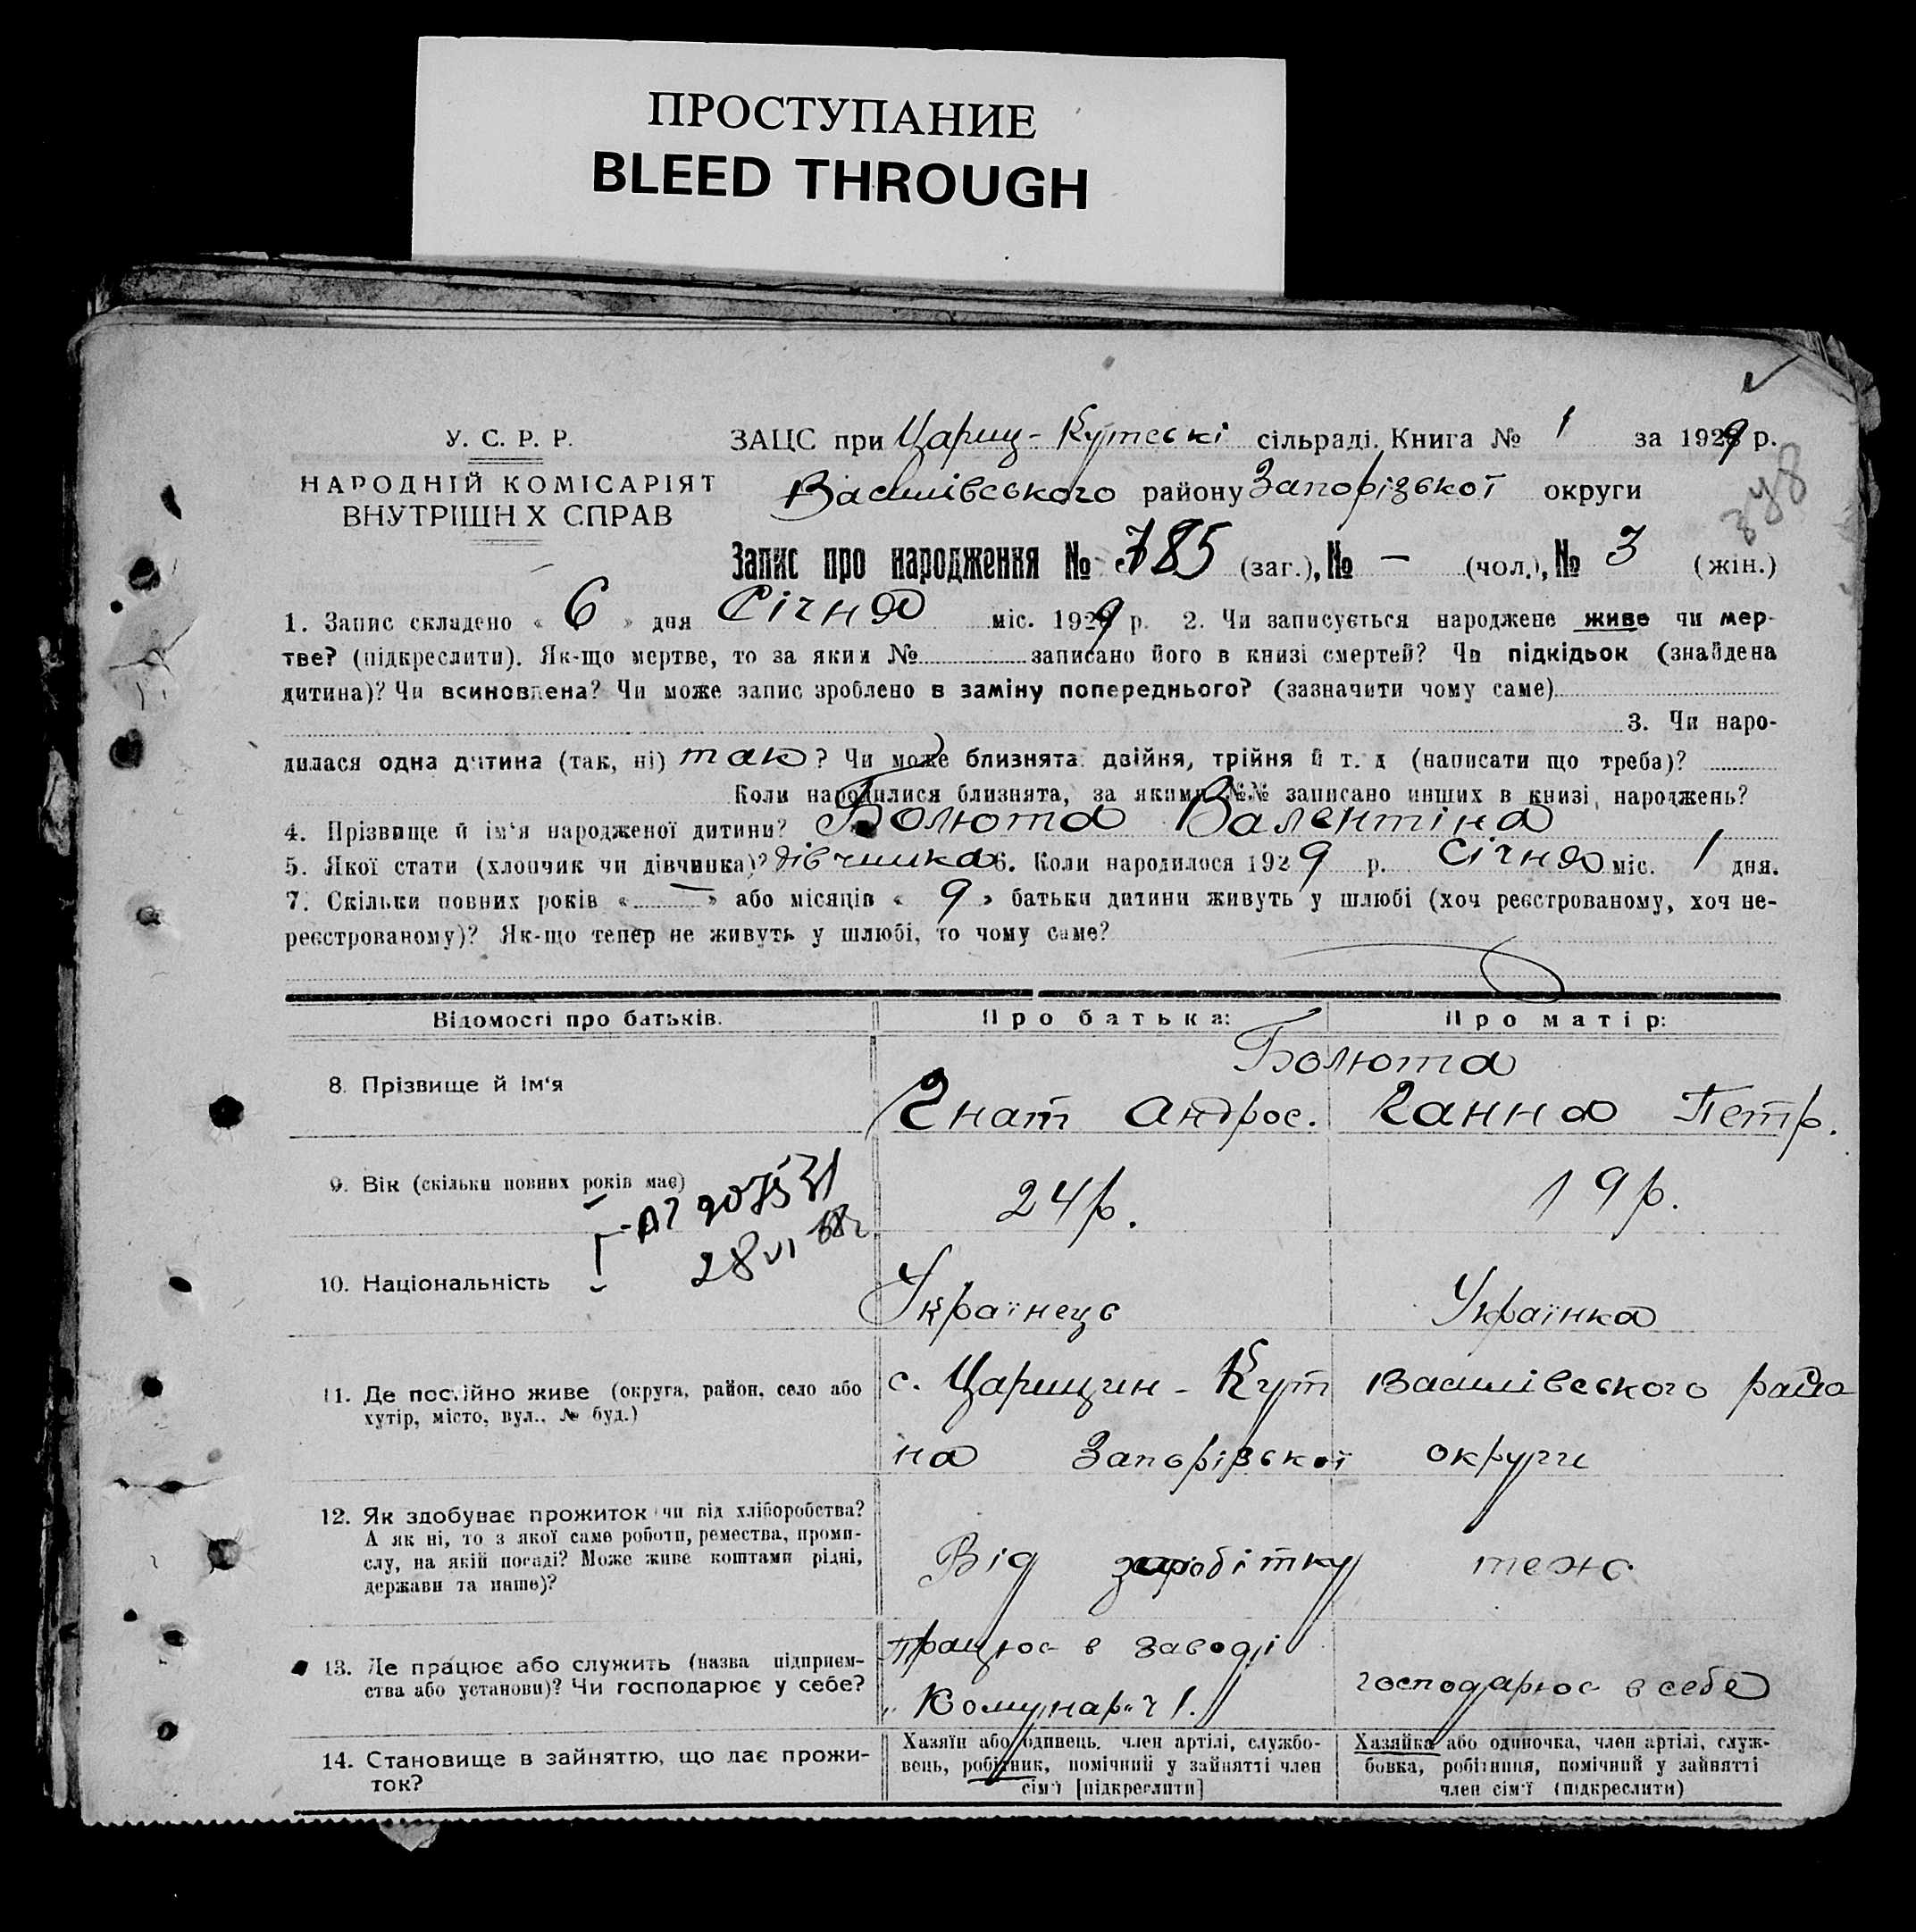 ПРОСТУПАНИЕ
BLEED THROUGH
У. С. Р. Р.
НАРОДНІЙ КОМІСАРІЯТ
ВНУТРІШН Х СПРАВ
ЗАЦС при Цариц-Кутські сільраді. Книга № 1 за 1929 р.
Василівського району Запорізької округи
348
Запис про народження № 785 (заг.), № — (чол.), № 3 (жін.)
1. Запис складено « 6 » дня Січня міс. 1929 р. 2. Чи записується народжене живе чи мер-
тве? (підкреслити). Як-що мертве, то за яким № записано його в книзі смертей? Чи підкідьок (знайдена
дитина)? Чи всиновлена? Чи може запис зроблено в заміну попереднього? (зазначити чому саме)
3. Чи наро-
дилася одна дитина (так, ні) так? Чи може близнята: двійня, трійня й т. д (написати що треба)?
Коли народилися близнята, за якими №№ записано инших в книзі народжень?
4. Прізвище й ім'я народженої дитини? Болюта Валентіна
5. Якої стати (хлопчик чи дівчинка)? дівчинка 6. Коли народилося 1929 р. Січня міс. 1 дня.
7. Скільки повних років « — » або місяців « 9 » батьки дитини живуть у шлюбі (хоч реєстрованому, хоч не-
реєстрованому)? Як-що тепер не живуть у шлюбі, то чому саме?
Відомості про батьків. Про батька: Про матір:
Болюта
8. Прізвище й ім'я Гнат Андрос. Ганна Петр.
9. Вік (скільки повних років має) 24 р. 19 р.
28 VI
10. Національність Українець Українка
11. Де постійно живе (округа, район, село або
хутір, місто, вул., № буд.)
с. Царицин-Кут Василівського райо
на Запорізької округи
12. Як здобуває прожиток чи від хліборобства?
А як ні, то з якої саме роботи, ремества, проми-
слу, на якій посаді? Може живе коштами рідні,
держави та инше)?
Від заробітку теж
13. Де працює або служить (назва підприєм-
ства або установи)? Чи господарює у себе?
Працює в заводі
„Комунар" ч 1.
господарює в себе
14. Становище в зайняттю, що дає прожи-
ток?
Хазяїн або одинець, член артілі, службо-
вець, робітник, помічний у зайнятті член
сім'ї [підкреслити]
Хазяйка або одиночка, член артілі, служ-
бовка, робітниця, помічний у зайнятті
член сім'ї (підкреслити)